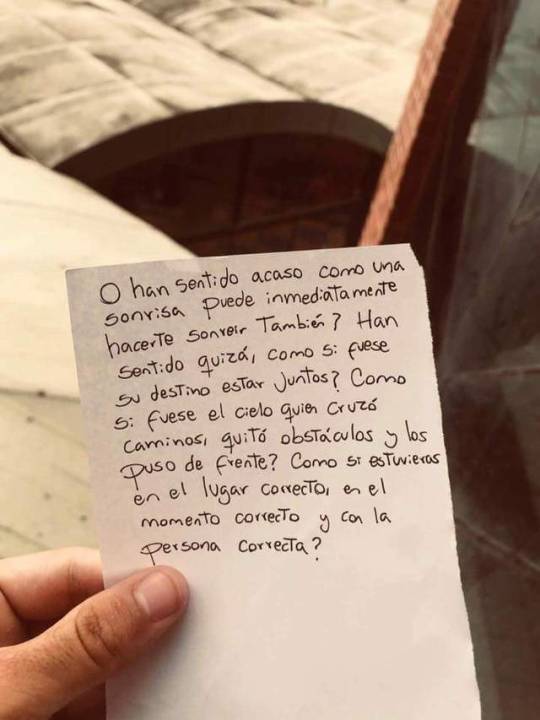 O han sentido acaso como una
sonrisa puede inmediatamente
hacerte sonreir también? Han
sentido quizá, como si fuese
su destino estar juntos? Como
si fuese el cielo quien cruzó
caminos, quitó obstáculos y los
puso de frente? Como si estuvieras
en el lugar correcto, en el
momento correcto y con la
persona correcta?